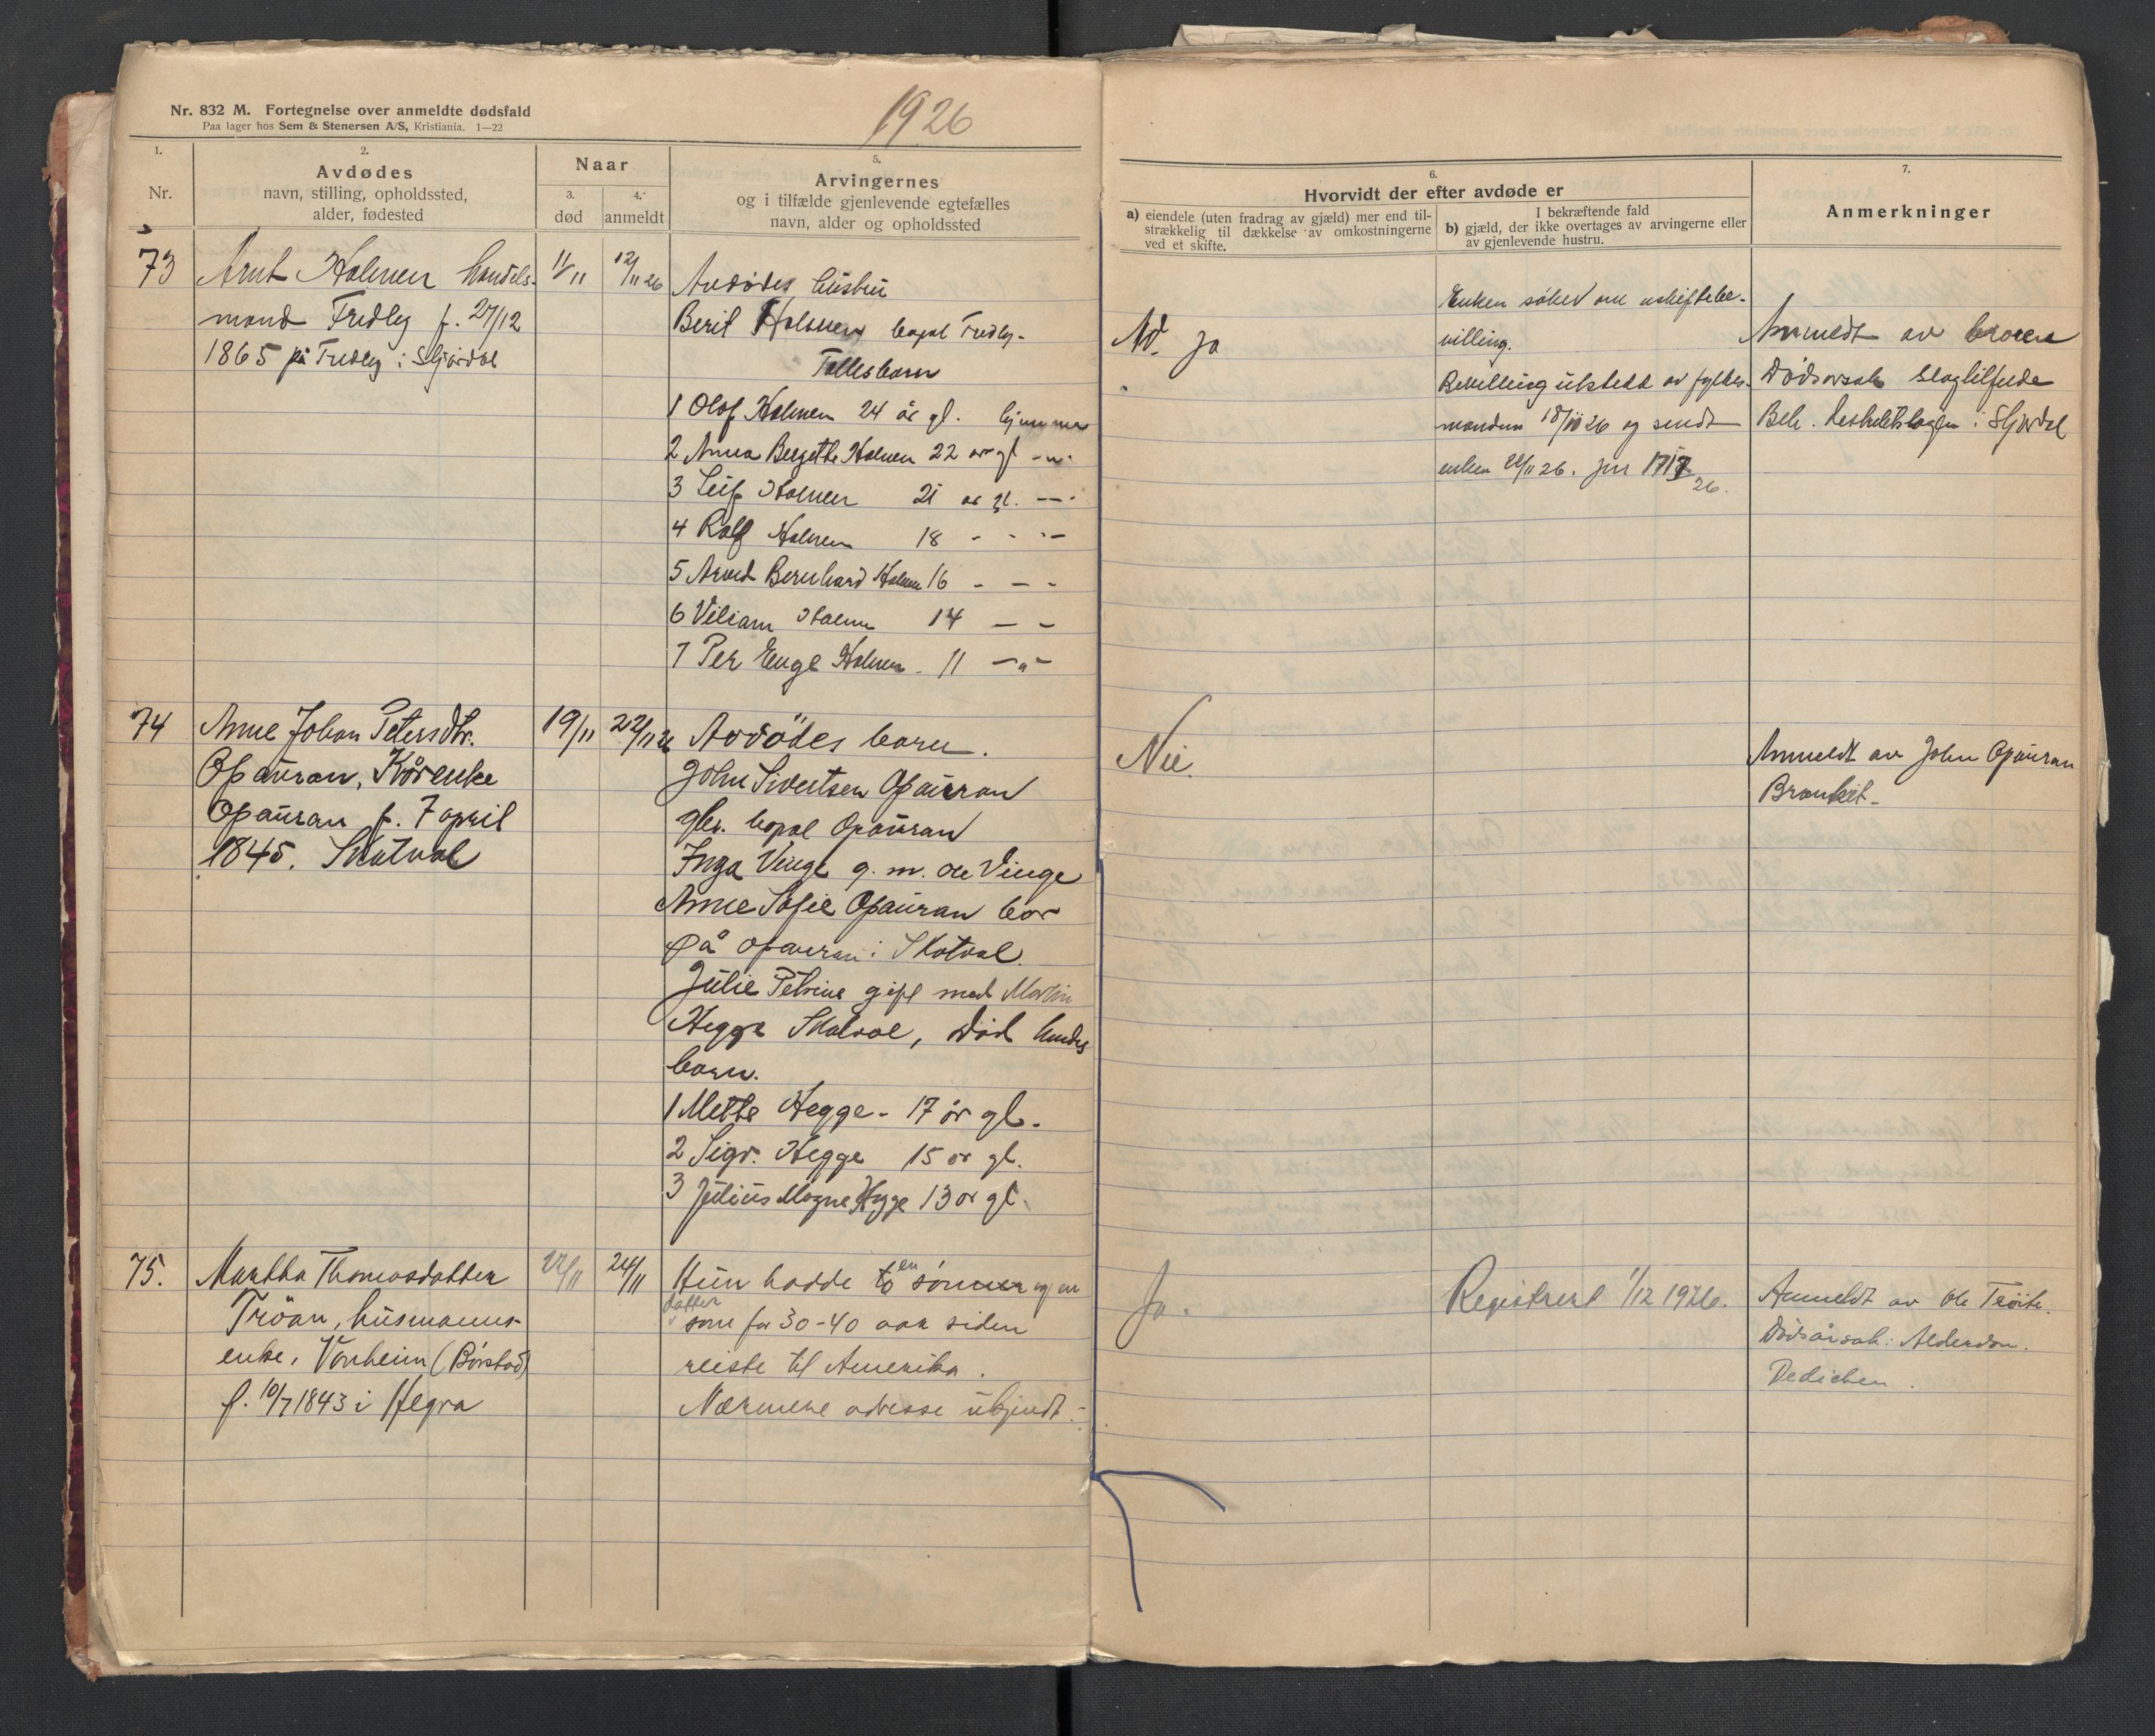 Nr. 832 M. Fortegnelse over anmeldte dødsfald
Paa lager hos Sem & Stenersen A/S, Kristiania. 1—22
1926
1.
Nr.
2.
Avdødes
navn, stilling, opholdssted,
alder, fødested
Naar
3.
død
4.
anmeldt
5.
Arvingernes
og i tilfælde gjenlevende egtefælles
navn, alder og opholdssted
6.
Hvorvidt der efter avdøde er
a) eiendele (uten fradrag av gjæld) mer end til-
strækkelig til dækkelse av omkostningerne
ved et skifte.
I bekræftende fald
b) gjæld, der ikke overtages av arvingerne eller
av gjenlevende hustru.
7.
Anmerkninger
73
Arnt Holmen handels-
mand Fredly f. 27/12
1865 på Fredly i Stjørdal
11/11
12/11 26
Avdødes hustru
Berit Holmen bopæl Fredly-
Fællesbarn
1 Olaf Holmen 24 år gl. hjemme
2 Anna Bergethe Holmen 22 år gl -"-
3 Leif Holmen 21 år gl. —
4 Rolf Holmen 18 - - -
5 Arvid Bernhard Holmen 16 - — -
6 Viliam Holmen 14 — -
7 Per Enge Holmen. 11 —"—
Ja
Enken søker om uskiftebe-
villing.
Bevilling utstedt av fylkes-
manden 18/11 26 og sendt
enken 22/11 26. Jnr 1717
26.
Anmeldt av broren
Dødsårsak slagtilfælde
i Stjørdal
74
Anne Johan Petersdtr.
Opauran, Kårenke
Opauran f. 7 april
1845. Skatval
19/11
22/11 26
Avdödes barn.
John Sivertsen Opauran
gbr. bopæl Opauran
Inga Vinge g. m. Ole Vinge
Anne Sofie Opauran bor
på Opauran i Skatval.
Julie Petrine gift med Martin
Hegge Skatval, död hendes
barn.
1 Mette Hegge - 17 år gl.
2 Sigr. Hegge 15 år gl.
3 Julius Magne Hegge 13 år gl.
Nei.
Anmeldt av John Opauran
Bronkit-
75.
Martha Thomasdatter
Tröan, husmanns-
enke, Vonheim (Börstad)
f. 10/7 1843 i Hegra
22/11
24/11
Hun hadde to en sönner og en
datter
som for 30-40 aar siden
reiste til Amerika.
Nærmere adresse ubjendt.-
Ja.
Registrert 1/12 1926.
Anmeldt av Ole Tröite.
Dödsårsak: Alderdom.
Dedichen.